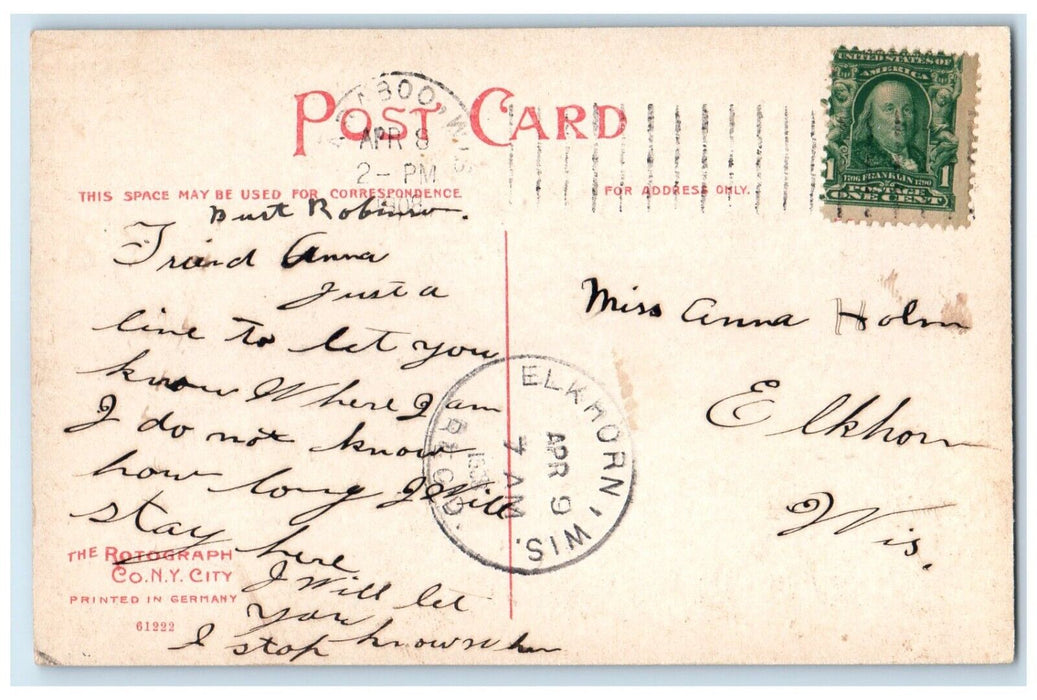 POST CARD
BARABOO, WIS
APR 8
2- PM
1908
UNITED STATES OF
AMERICA
1 1706 FRANKLIN 1790 1
POSTAGE
ONE CENT
THIS SPACE MAY BE USED FOR CORRESPONDENCE
FOR ADDRESS ONLY.
Robinso.
Friend Anna
Just a
line to let you
know Where I am
I do not know
how long I Will
stay here
I Will let
you
I stop know whe
Miss Anna Holm
Elkhorn
Wis.
ELKHORN, WIS.
APR 9
7 AM
REC'D.
THE ROTOGRAPH
CO. N.Y. CITY
PRINTED IN GERMANY
61222